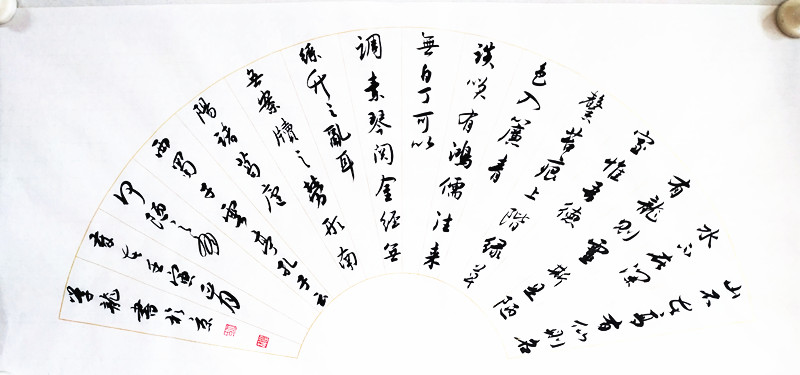 山不在高有仙则名
水不在深
有龍则靈斯是陋
室惟吾德
馨苔痕上階绿草
色入簾青
談笑有鴻儒往来
無白丁可以
調素琴阅金经無
絲竹之亂耳
無案牘之勞形南
陽諸葛廬
西蜀子雲亭孔子云
何陋之有
壬寅
學龍書於京